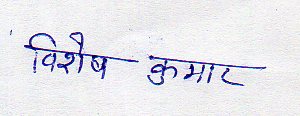 विशेष कुमार